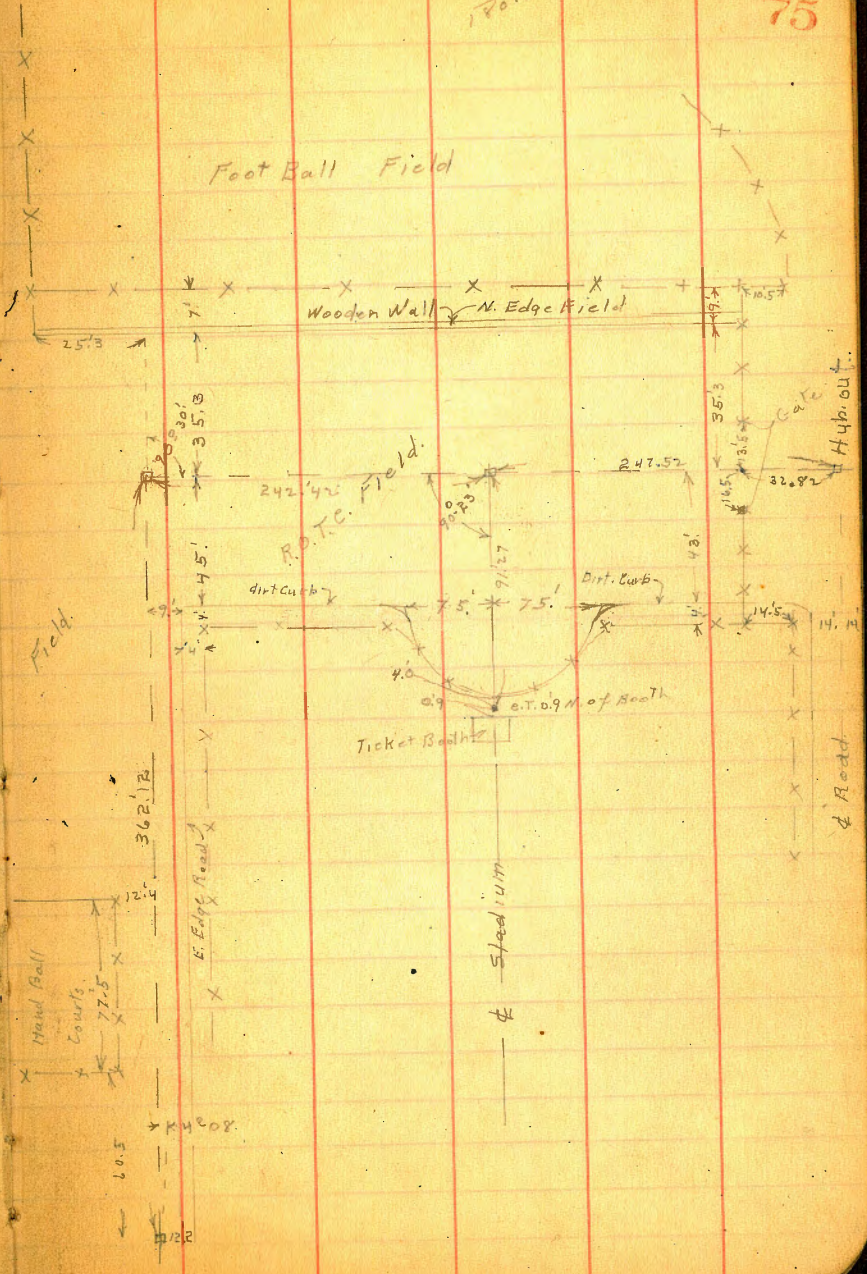 75
Foot Ball Field
7'
Wooden Wall N. Edge Field
10.5
25.3
35.3
35.3
Gate
Hub. out.
30'
13.5
247.52
242.42
16.5
32.82
R.O.T.C. Field.
91.27
45.
43'
dirt Curb
Dirt. Curb
9'
4'
75'
75'
4'
14.5
14'
14'
Field.
4'
4.0
0.9
e.T. 0.9 N. of Booth
Ticket Booth
362.12
E. Edge Road
₵ Stadium
₵ Road
12.4
Hand Ball
Courts.
77.5
4.08
60.5
12.2